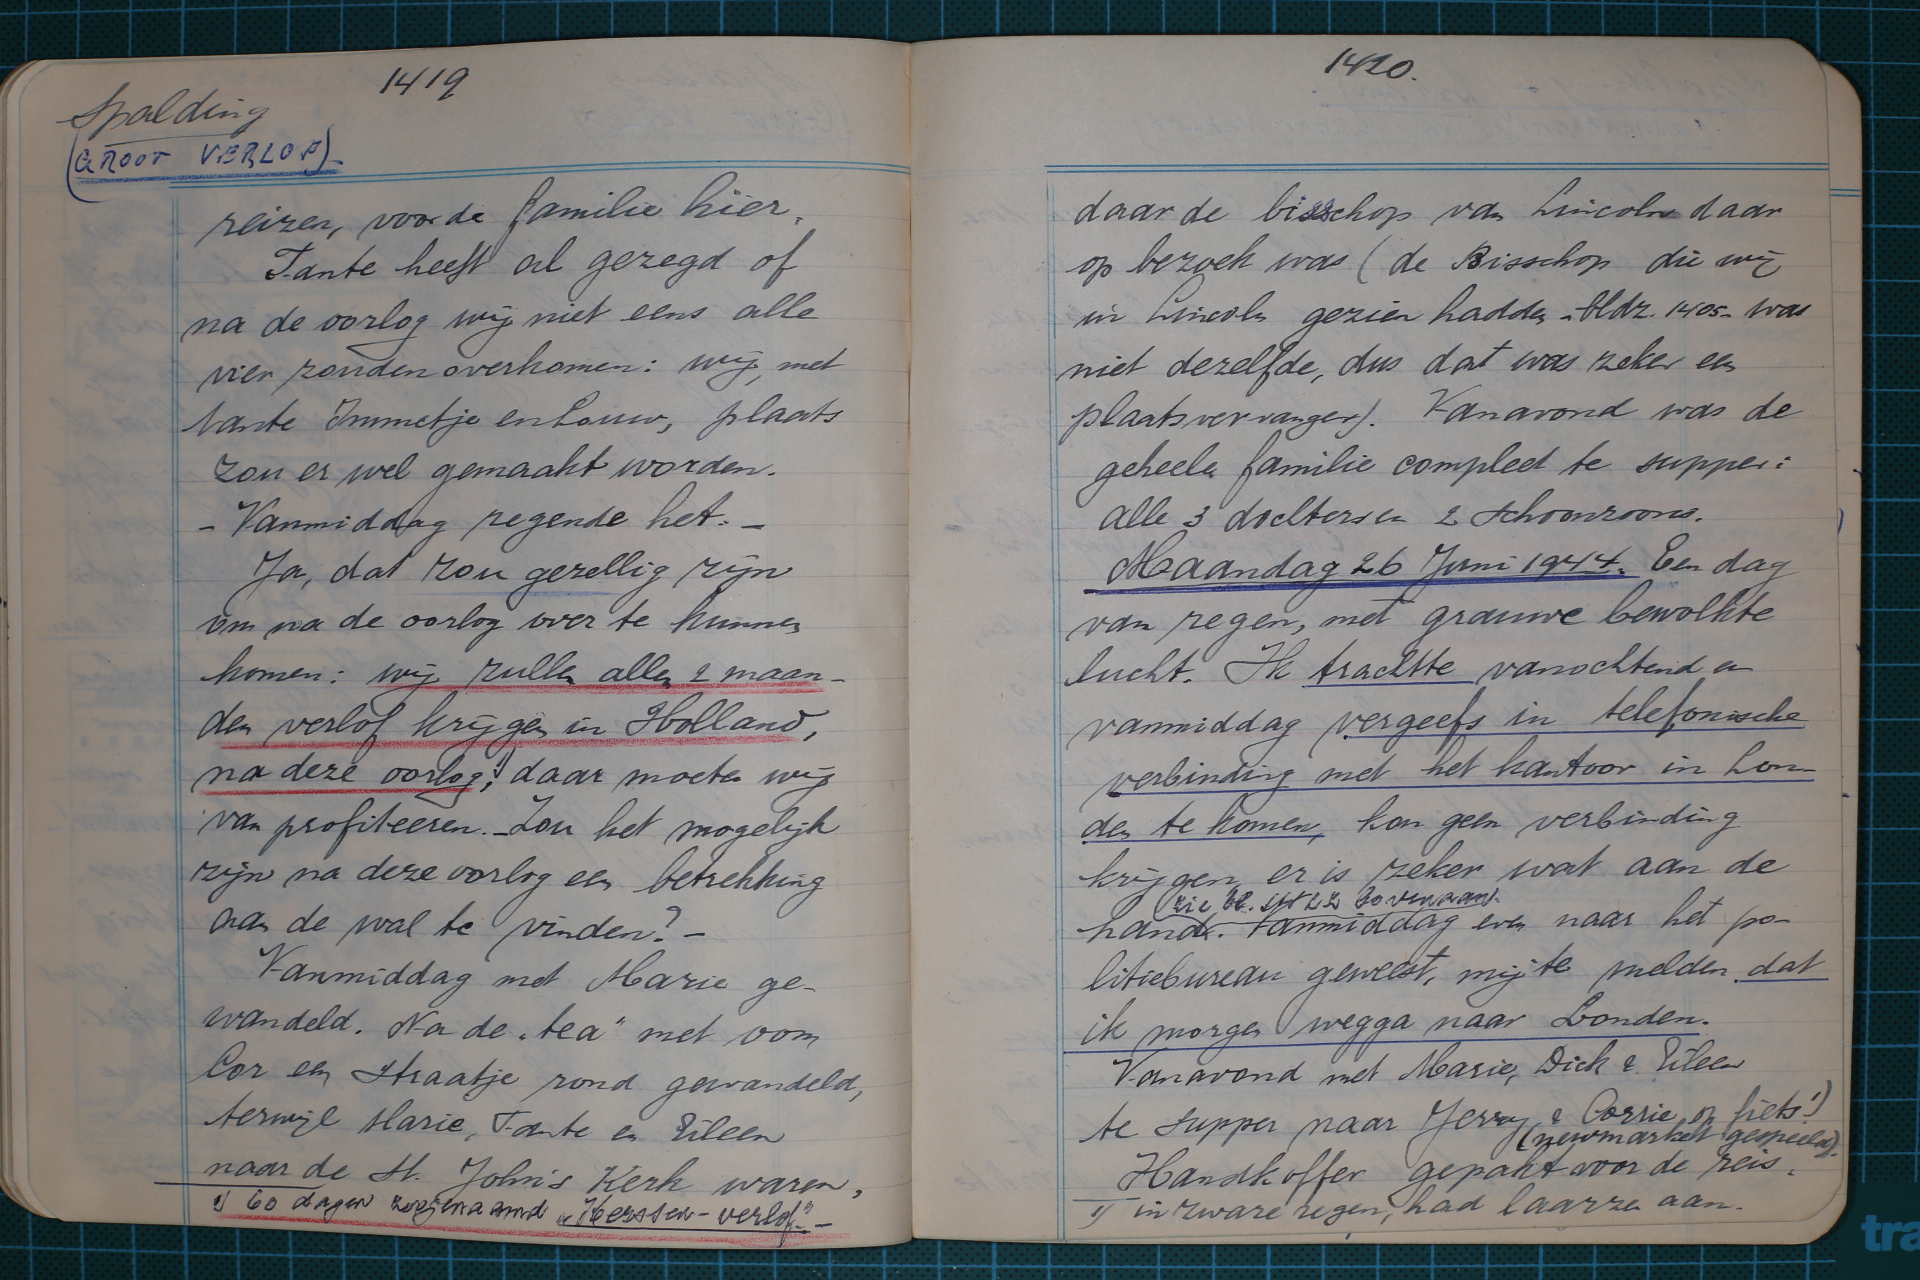 1419
Spalding
(GROOT VERLOF)
reizen, voor de familie hier.
Tante heeft al gezegd of
na de oorlog wij niet eens alle
vier zouden overkomen: wij, met
tante Immetje en Louw, plaats
zou er wel gemaakt worden.
- Vanmiddag regende het. -
Ja, dat zou gezellig zijn
om na de oorlog over te kunnen
komen: wij zullen allen 2 maan-
den verlof krijgen in Holland,
na deze oorlog; ¹) daar moeten wij
van profiteeren. - Zou het mogelijk
zijn na deze oorlog een betrekking
aan de wal te vinden? -
Vanmiddag met Marie ge-
wandeld. Na de „tea" met oom
Cor een straatje rond gewandeld,
terwijl Marie, Tante en Eileen
naar de St. John's Kerk waren,
¹) 60 dagen zoogenaamd „Kerssen-verlof". -
1420.
daar de bisschop van Lincoln daar
op bezoek was (de Bisschop die wij
in Lincoln gezien hadden - bldz. 1405 - was
niet dezelfde, dus dat was zeker een
plaatsvervanger). Vanavond was de
geheele familie compleet te supper:
alle 3 dochters en 2 schoonzoons.
Maandag 26 Juni 1944. Een dag
van regen, met grauwe bewolkte
lucht. Ik trachtte vanochtend en
vanmiddag vergeefs in telefonische
verbinding met het kantoor in Lon-
den te komen, kon geen verbinding
krijgen, er is zeker wat aan de
zie bl. 1422 bovenaan.
hand. Vanmiddag even naar het po-
litiebureau geweest, mij te melden dat
ik morgen wegga naar Londen.
Vanavond met Marie, Dick & Eileen
te supper naar Jerry & Corrie, op fiets ¹)
(newmarket gespeeld).
Handkoffer gepakt voor de reis.
¹) in zware regen, had laarzen aan.